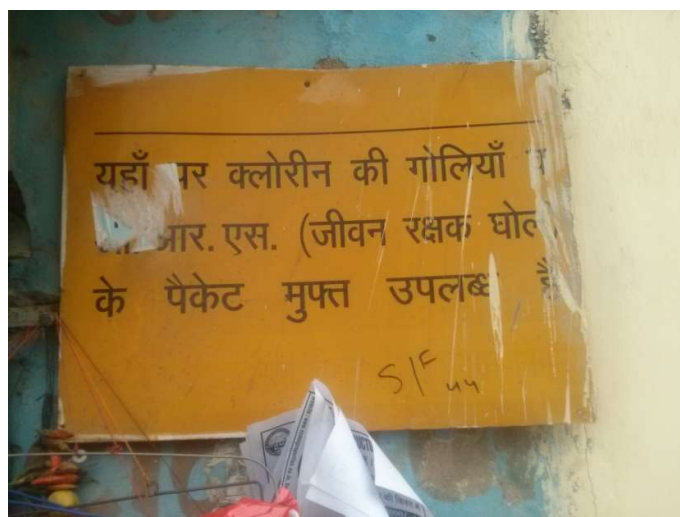 यहाँ पर क्लोरीन की गोलियाँ
आर. एस. (जीवन रक्षक घोल)
के पैकेट मुफ्त उपलब्ध हैं
S/F 44